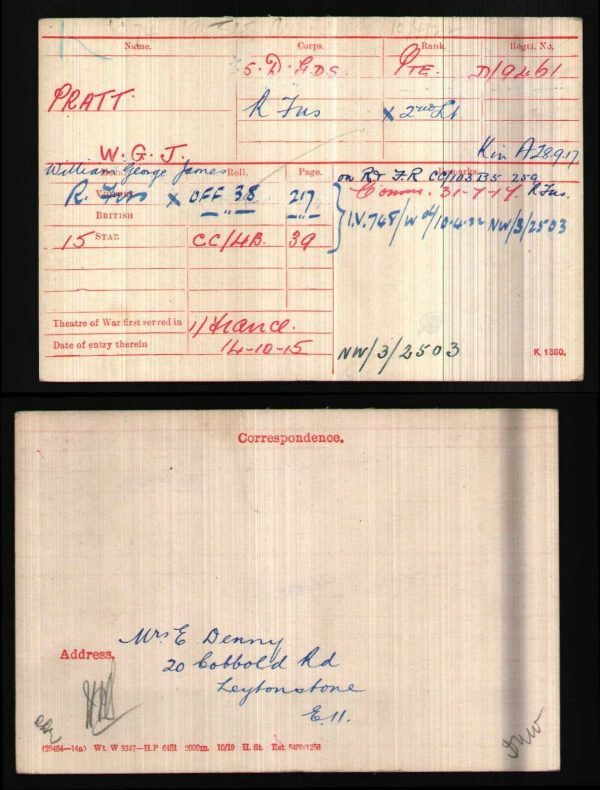 Name. Corps. Rank. Regtl. No.
PRATT. 5. D. GDS. PTE. D/9461
R Fus X 2nd Lt
W. G. J. Kin A 28.9.17
William George James
Roll. Page. Remarks.
on R & F. R CC/103 B5 259
R. Fus X OFF 38 217 Comm. 31-7-17. R Fus.
BRITISH " " " I.V. 748/W 10.4.22 NW/3/2503
15 STAR CC/4B. 39
Theatre of War first served in 1/France.
Date of entry therein 14-10-15 NW/3/2503
K 1380.
Correspondence.
Address.
Mrs E Denny
20 Cobbold Rd
Leytonstone
E. 11.
(25454—14a) Wt. W 3347—H.P 6451 2000m. 10/19 H. St. Est